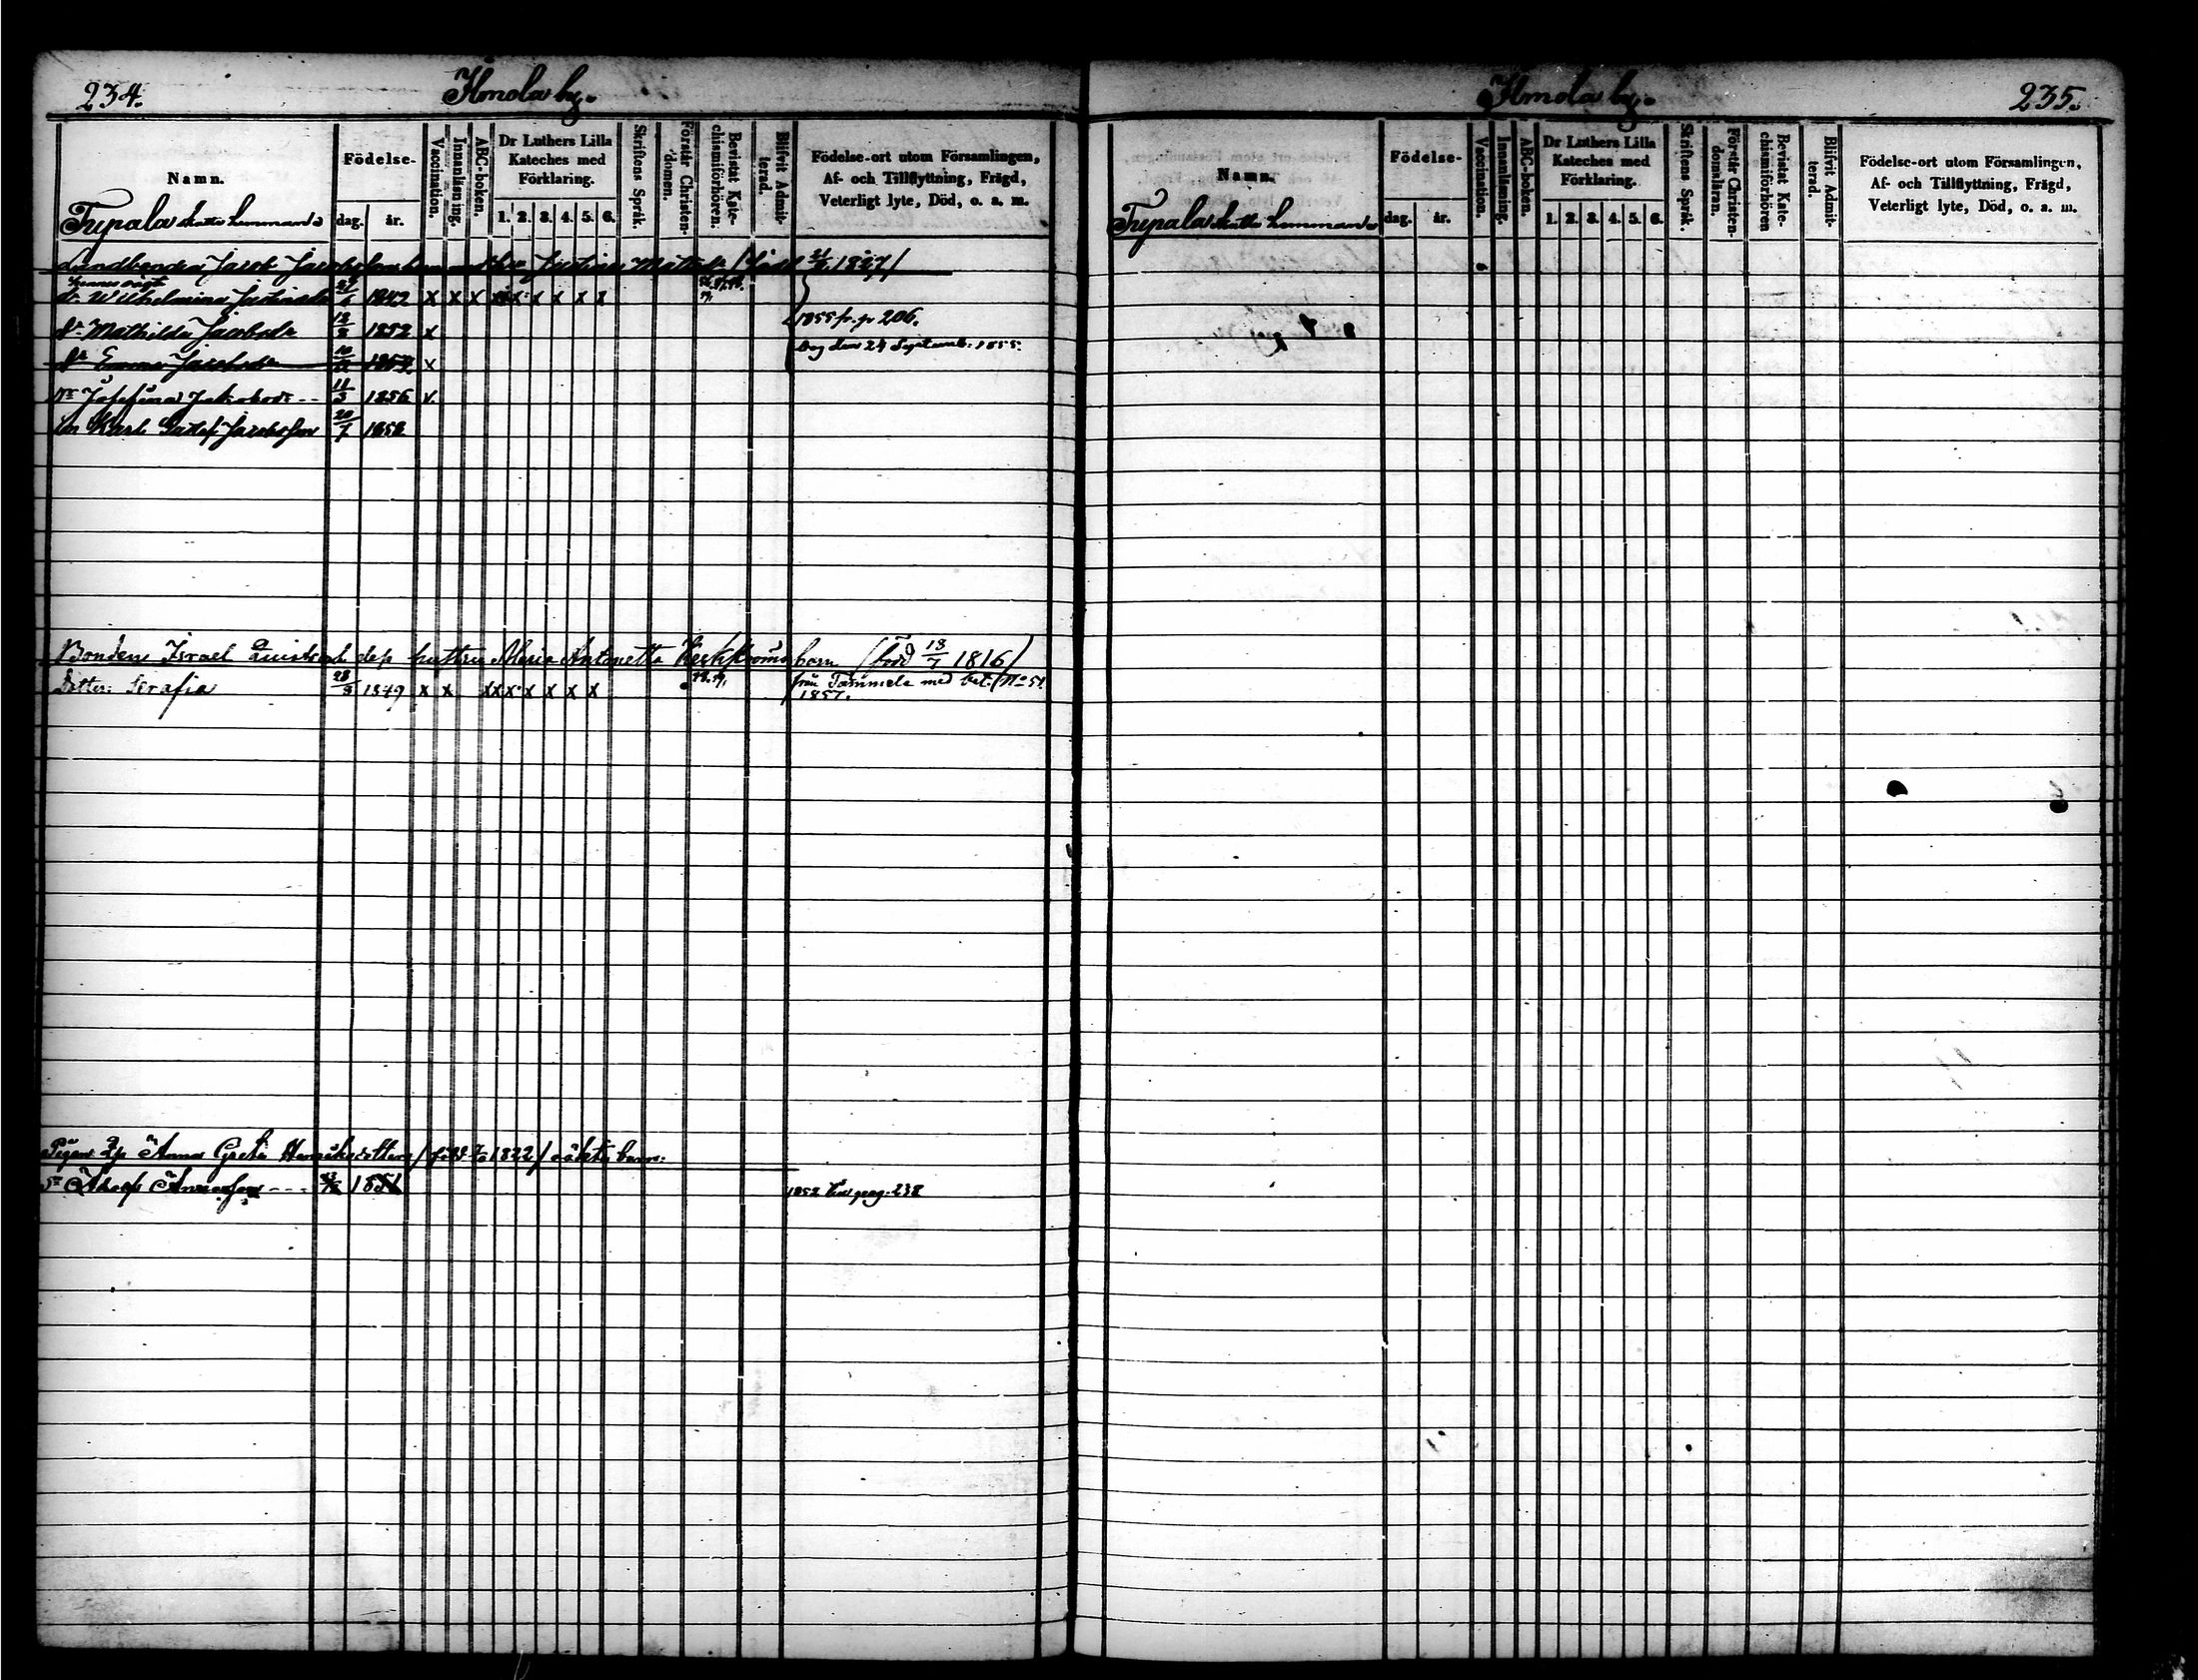 234.
Ilmola by.
Namn.
Födelse-
dag.
år.
Vaccination.
Innanläsning.
ABC-boken.
Dr Luthers Lilla
Kateches med
Förklaring.
1. 2. 3. 4. 5. 6.
Skriftens Språk.
Förstår Christen-
domen.
Bevistat Kate-
chismiförhören.
Blifvit Admit-
terad.
Födelse-ort utom Församlingen,
Af- och Tillflyttning, Frägd,
Veterligt lyte, Död, o. a. m.
Typala skatte hemman
Landbonden Jacob Jacobsson Justina Mathilda /född 1827/
dr. Wilhelmina 1842 x x x x x x x x
dr. Mathilda Jacobsdr 18/8 1852 x 1855 fr. p 206.
dr Emma Jacobsdr x Dog den 24 Septemb: 1855.
dr Josefina Jakobsdr -- 11/3 1856 v.
Son Karl Gustaf Jacobsson 20/7 1858
Bonden Israel dess hustru Maria Antonetta barn (född 13/7 1816)
Dotter: Serafia 28/3 1849 x x x x x x x x x från Tammela med bet. No 51.
1857.
Pigan Anna Greta Henriksdotters /född 1822/ oäkta barn:
Adolf ---- 1851 1852 pag. 238
Ilmola by.
235.
Namn.
Födelse-
dag.
år.
Vaccination.
Innanläsning.
ABC-boken.
Dr Luthers Lilla
Kateches med
Förklaring.
1. 2. 3. 4. 5. 6.
Skriftens Språk.
Förstår Christen-
domsläran.
Bevistat Kate-
chismiförhören
Blifvit Admit-
terad.
Födelse-ort utom Församlingen,
Af- och Tillflyttning, Frägd,
Veterligt lyte, Död, o. a. m.
Typala skatte hemman